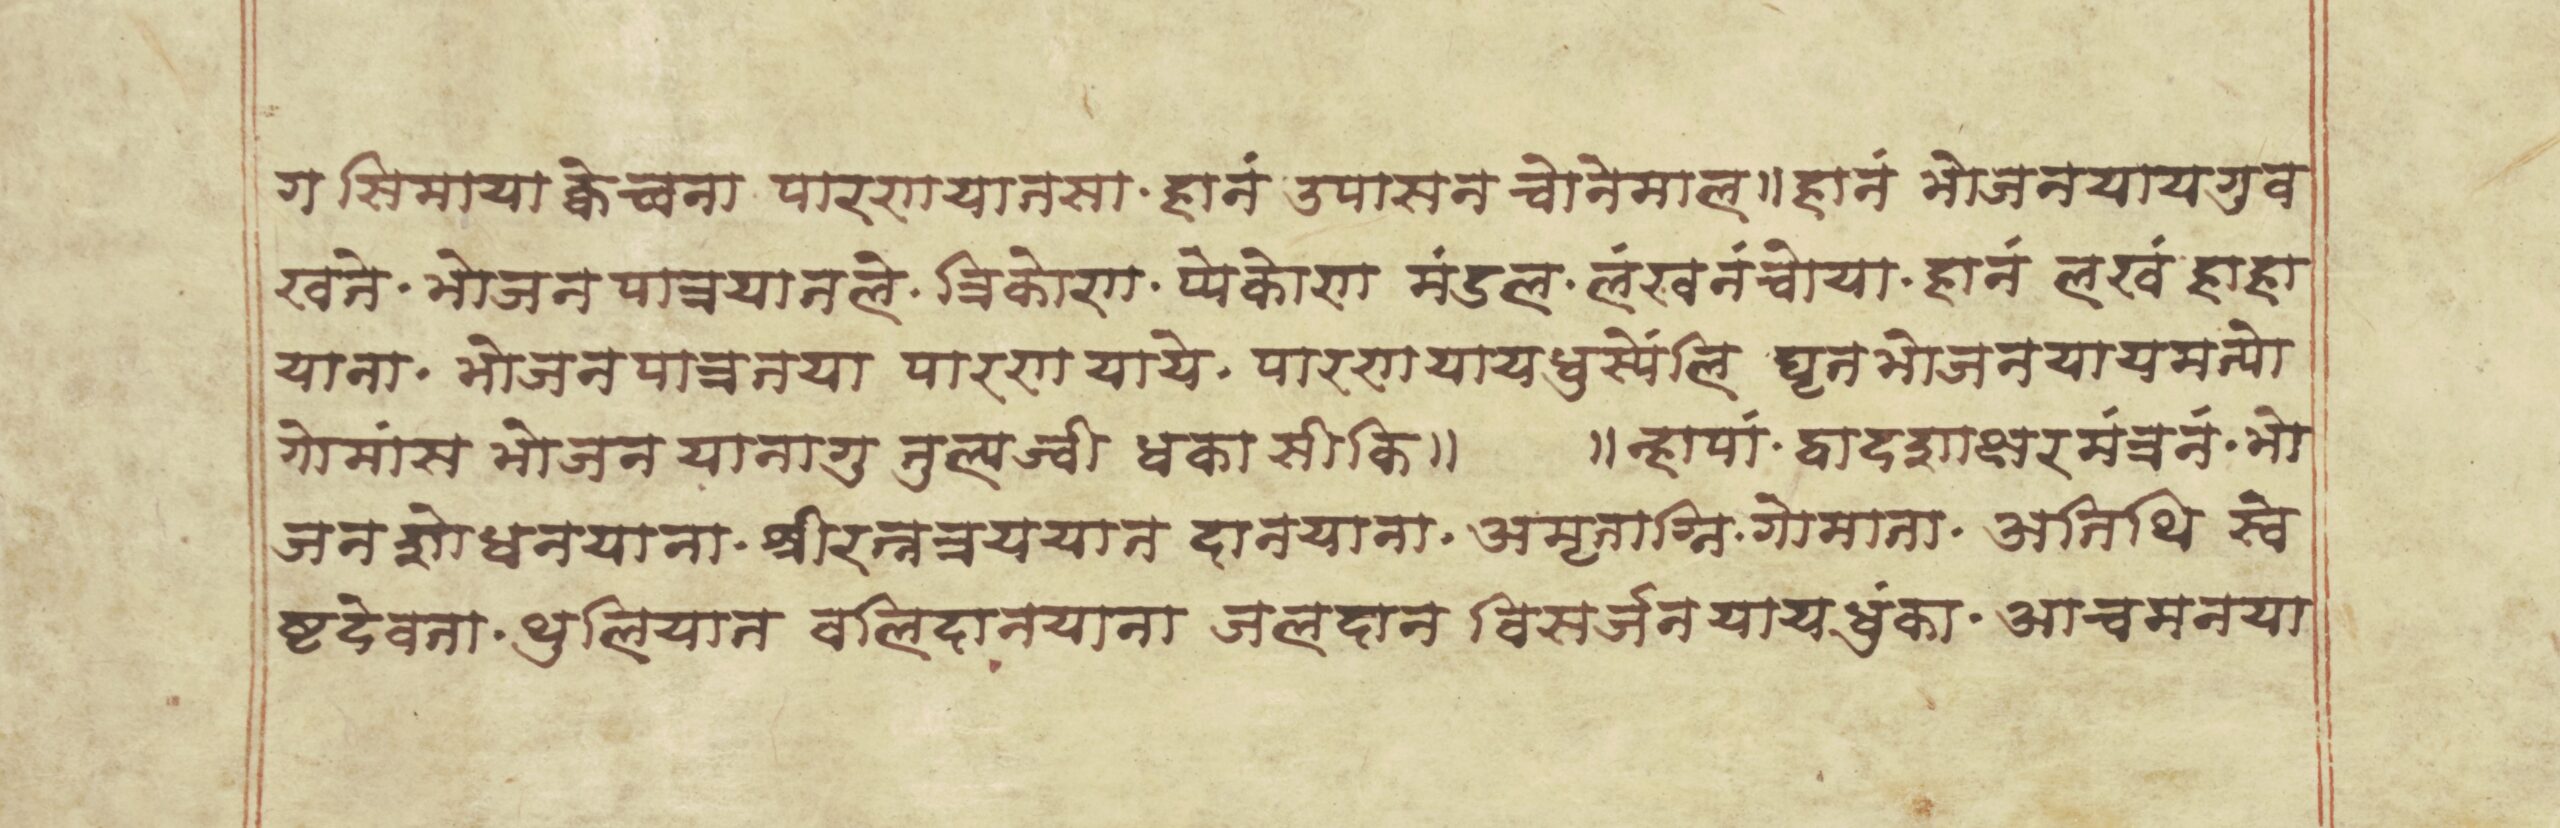 ग सिमाया क्वेच्वना पारणायातसा· हानं उपासन च्वोनेमाल॥हानं भोजनयायगुव
खते· भोजनपात्रयातले· त्रिकोण· प्येकोण मंडल· लंखनंच्वोया· हानं लखं हाहा
याना· भोजनपात्रनया पारणा याये· पारणायायधुस्येंलि घृतभोजनयायमत्यो
गोमांस भोजन यानागु तुल्यज्वी धकासीकि॥ ॥न्हापां· द्वादशाक्षरमंत्रनं· भो
जनशोधनयाना· श्रीरत्नत्रययात दानयाना· अमृताग्नि· गोमाता· अतिथि स्वे
ष्टदेवता· थुलियात वलिदानयाना जलदान विसर्जनयायधुंका· आचमनया